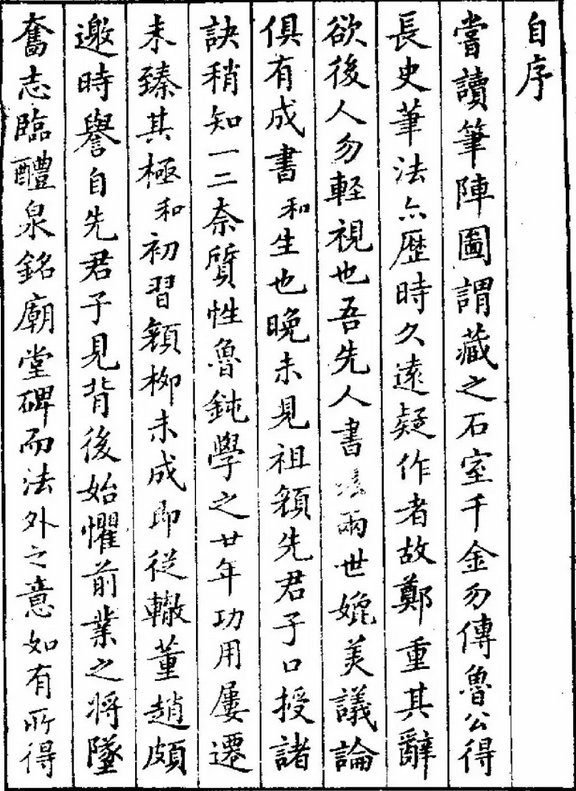 自序
嘗讀筆陣圖謂藏之石室千金勿傳魯公得
長史筆法亦歷時久遠疑作者故鄭重其辭
欲後人勿輕視也吾先人書法兩世媲美議論
俱有成書和生也晚未見祖額先君子口授諸
訣稍知一二奈質性魯鈍學之廿年功用屢遷
未臻其極和初習顏柳未成即從轍董趙頗
邀時譽自先君子見背後始懼前業之將墜
奮志臨醴泉銘廟堂碑而法外之意如有所得